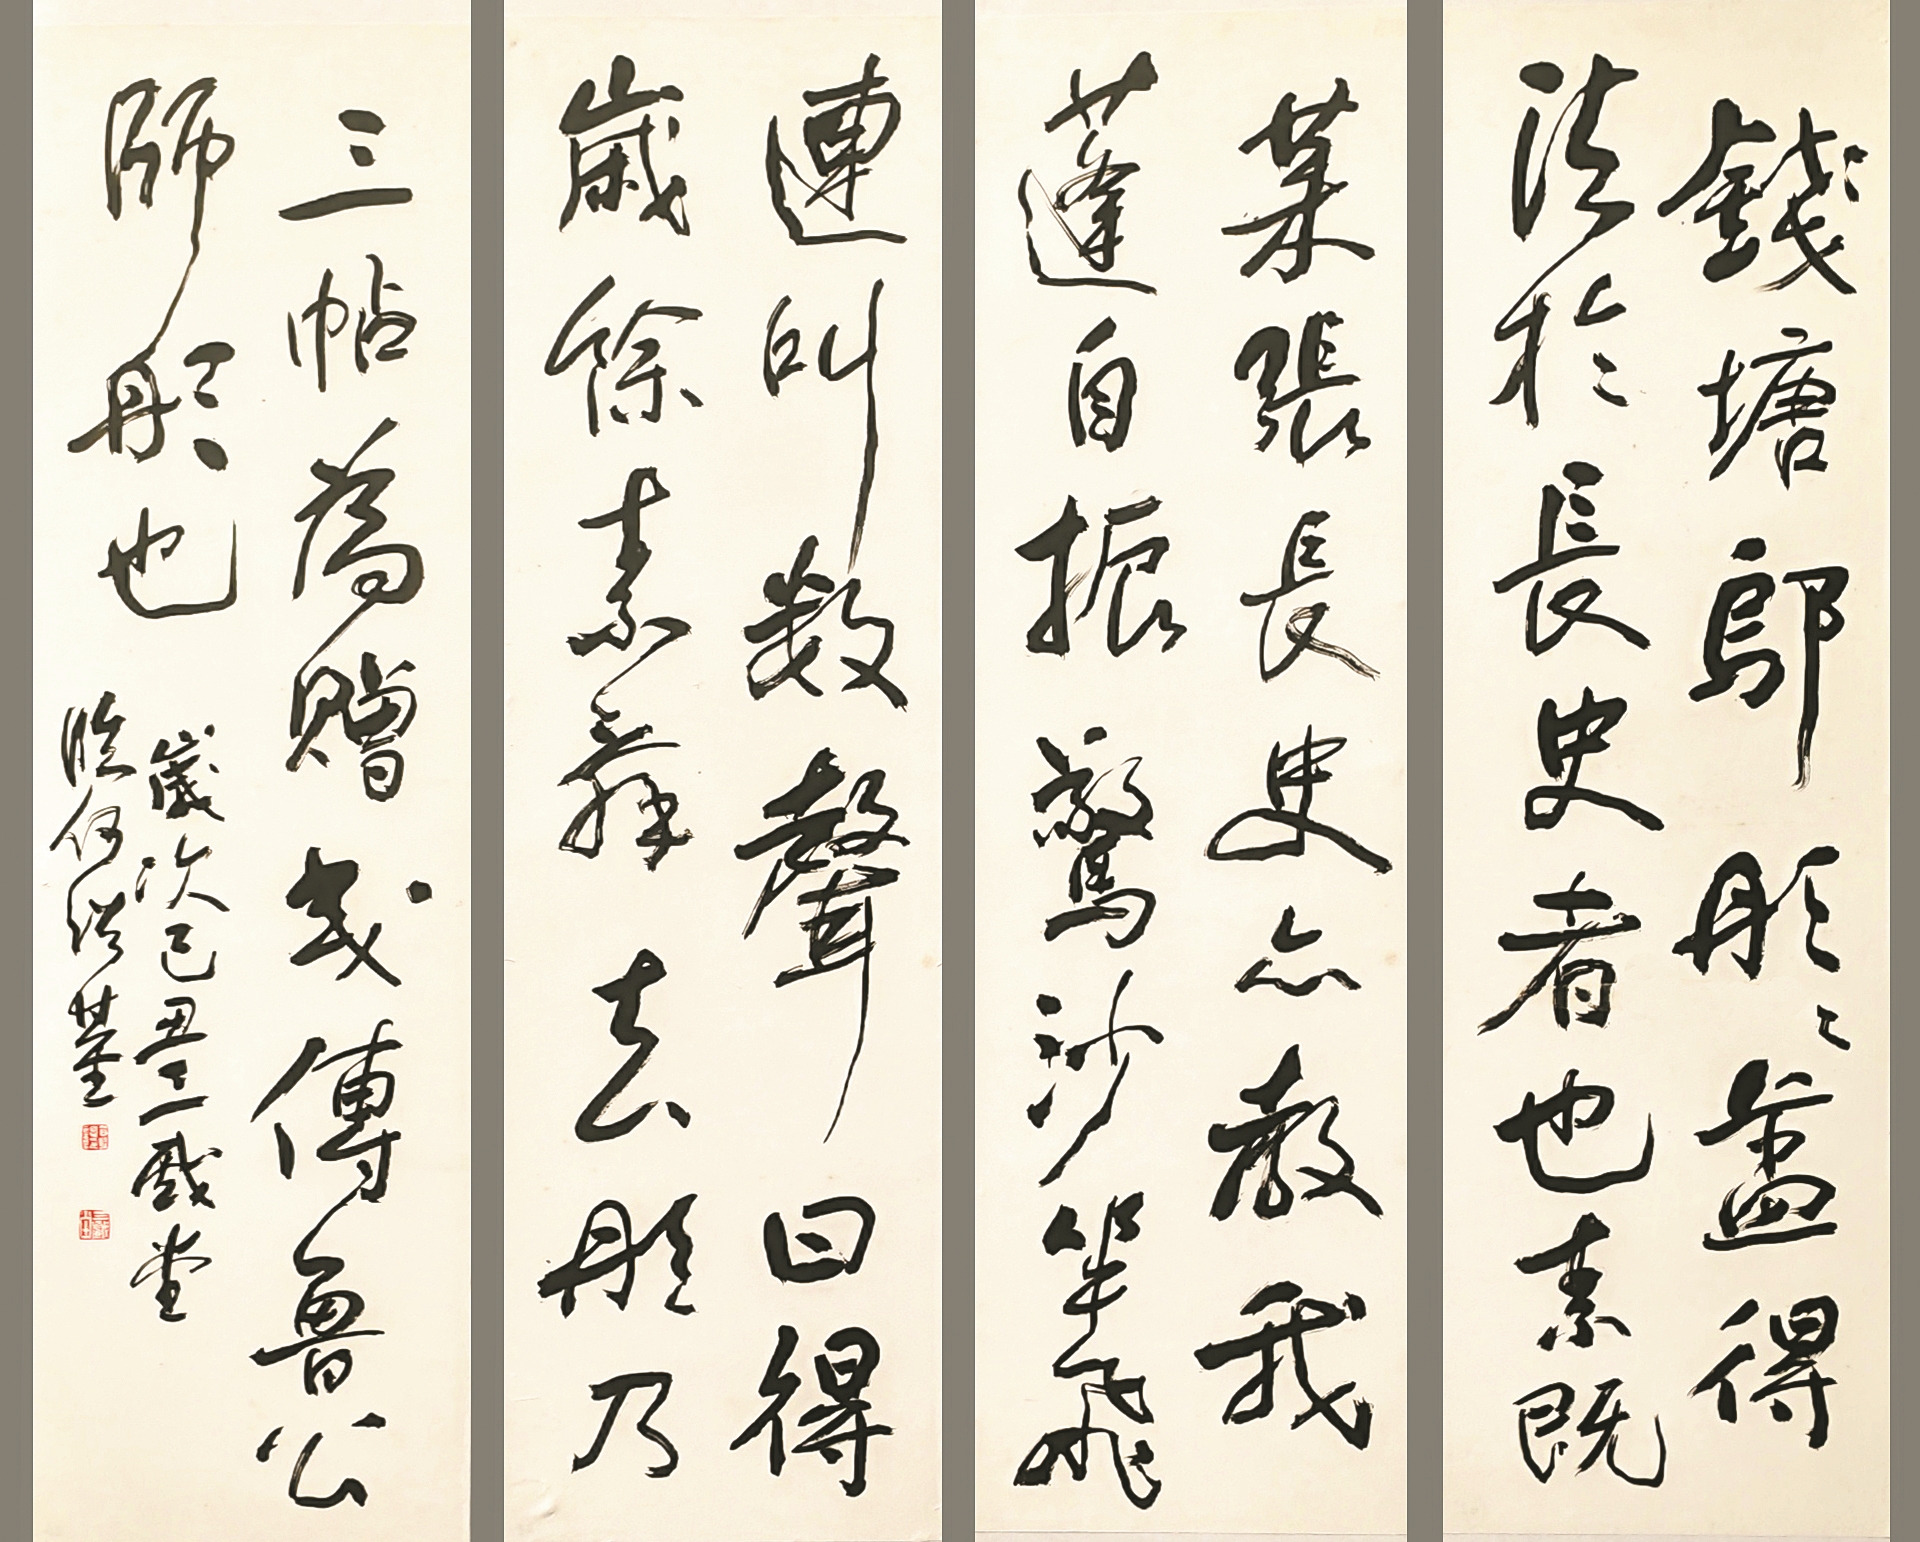 錢塘鄔彤〻盖得
法於長史者也素既
張長史亦教我
蓬自振驚沙坐飛
連叫数聲曰得
歲餘素辭去彤乃
三帖為贈或傳魯公
師彤也
歲次己丑 戲堂
臨何紹基